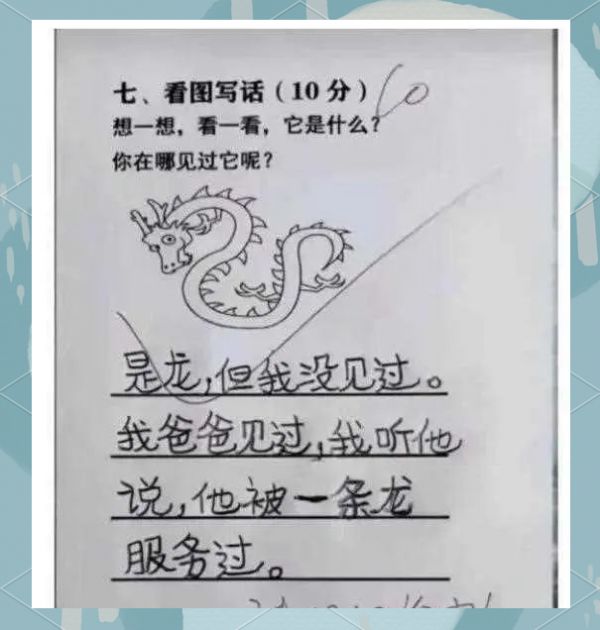 七、看图写话（10 分）
10
想一想，看一看，它是什么？
你在哪见过它呢？
是龙，但我没见过。
我爸爸见过，我听他
说，他被一条龙
服务过。